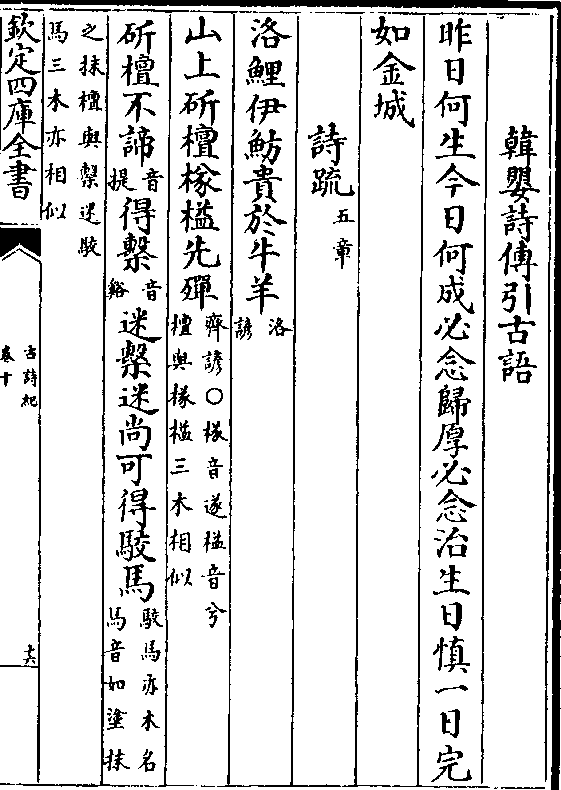 韓嬰詩傳引古語
昨日何生今日何成必念歸厚必念治生日慎一日完
如金城
詩䟽五章
洛鯉伊魴貴於牛羊洛諺
山上斫檀榽橀先殫齊諺○榽音遂橀音兮檀與榽橀三木相似
斫檀不諦音提得檕音谿迷檕迷尚可得駮馬駮馬亦木名馬音如塗抹
之抹檀與檕迷駮馬三木亦相似
欽定四庫全書
古詩紀
卷十
十六